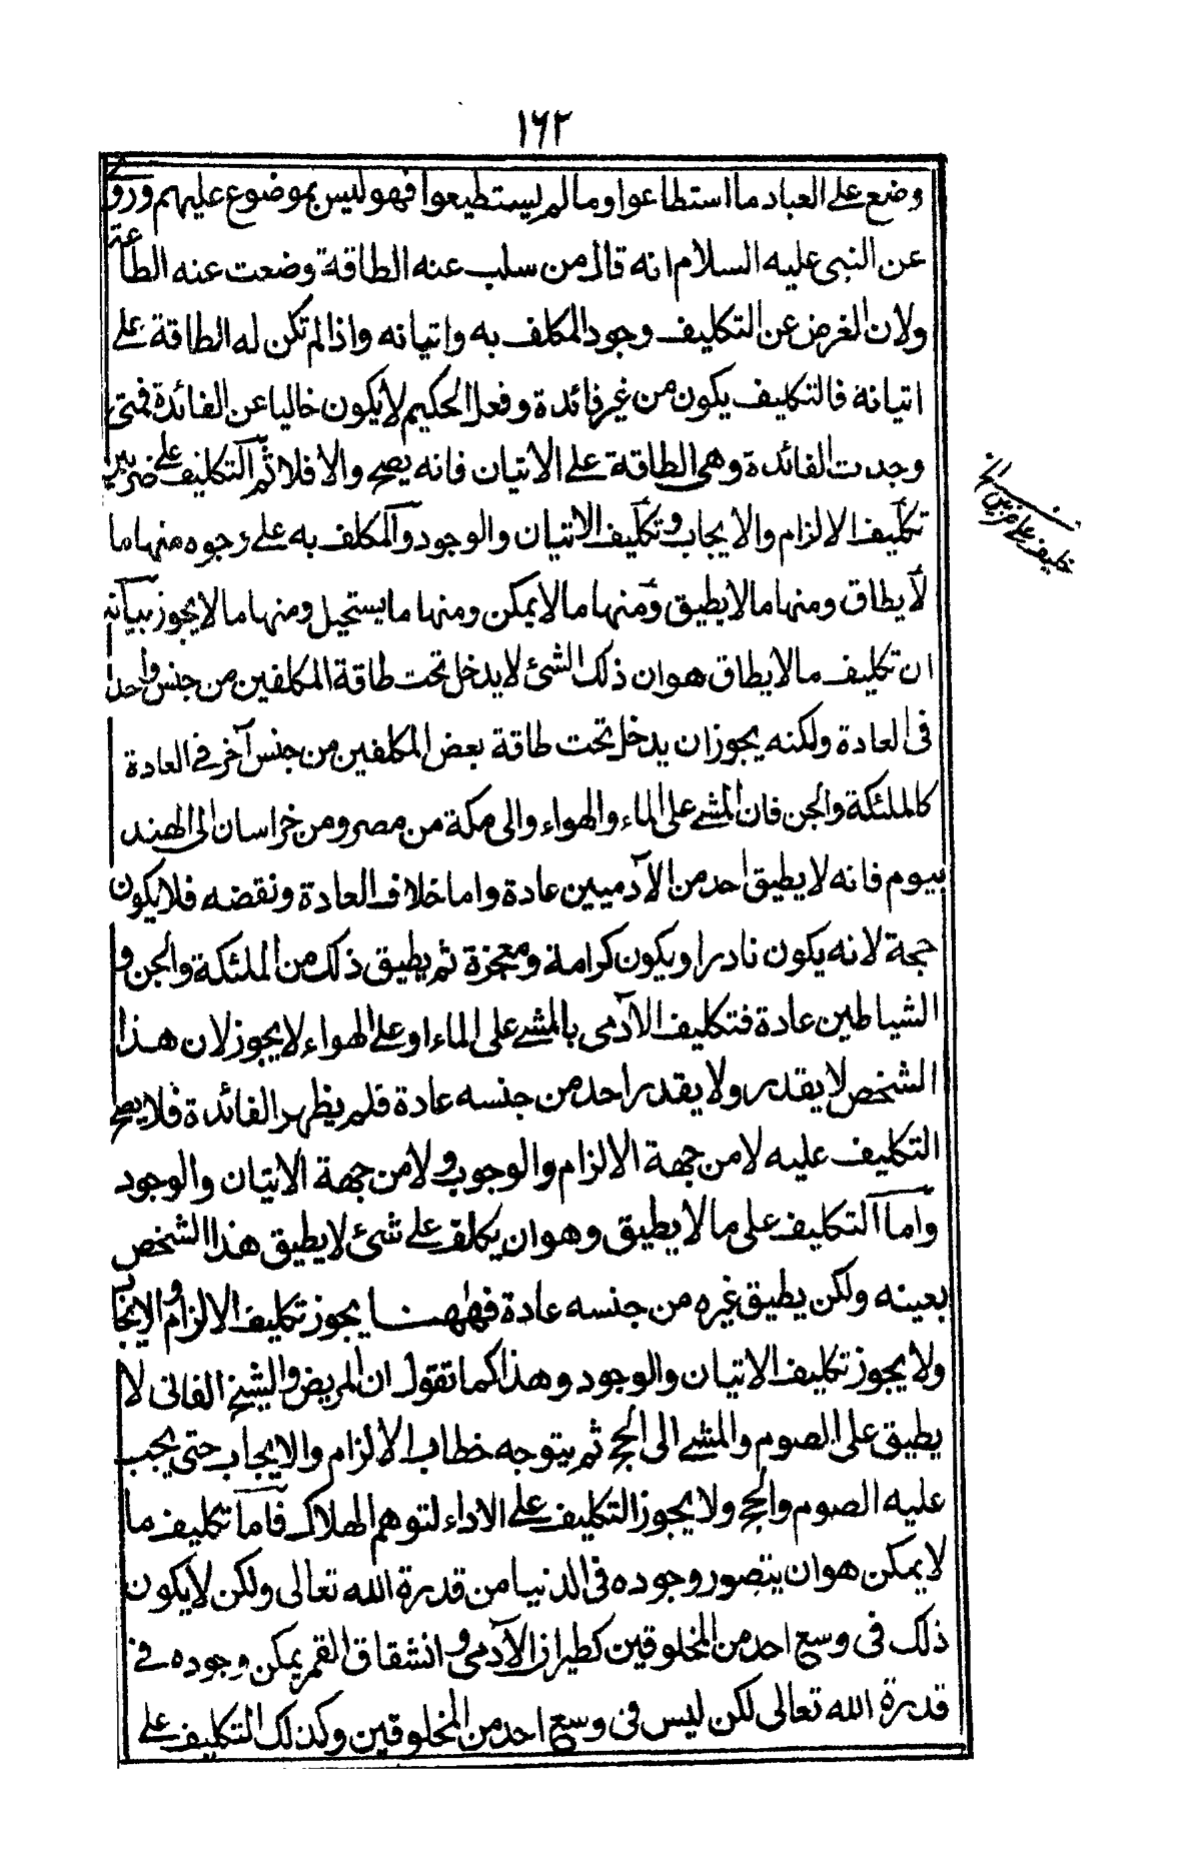 ١٦٢
وضع على العباد ما استطاعوا وما لم يستطيعوا فهو ليس بموضوع عليهم وروى
عن النبى عليه السلام انه قال من سلب عنه الطاقة وضعت عنه الطاعة
ولان الغرض عن التكليف وجود المكلف به واتيانه واذا لم تكن له الطاقة على
اتيانه فالتكليف يكون من غير فائدة وفعل الحكيم لا يكون خاليا عن الفائدة فمتى
وجدت الفائدة وهى الطاقة على الاتيان فانه يصح والا فلا ثم التكليف على ضربين
تكليف الالزام والايجاب وتكليف الاتيان والوجود والمكلف به على وجوه منها ما
لا يطاق ومنها ما لا يطيق ومنها ما لا يمكن ومنها ما يستحيل ومنها ما لا يجوز بيانه
ان تكليف ما لا يطاق هو ان ذلك الشئ لا يدخل تحت طاقة المكلفين من جنس واحد
فى العادة ولكنه يجوز ان يدخل تحت طاقة بعض المكلفين من جنس آخر فى العادة
كالملئكة والجن فان المشى على الماء والهواء والى مكة من مصر ومن خراسان الى الهند
بيوم فانه لا يطيق احد من الآدميين عادة واما خلاف العادة ونقضه فلا يكون
حجة لانه يكون نادرا ويكون كرامة ومعجزة ثم يطيق ذلك من الملئكة والجن و
الشياطين عادة فتكليف الآدمى بالمشى على الماء او على الهواء لا يجوز لان هذا
الشخص لا يقدر ولا يقدر احد من جنسه عادة فلم يظهر الفائدة فلا يصح
التكليف عليه لا من جهة الالزام والوجوب ولا من جهة الاتيان والوجود
واما التكليف على ما لا يطيق وهو ان يكلف على شئ لا يطيق هذا الشخص
بعينه ولكن يطيق غيره من جنسه عادة فههنا يجوز تكليف الالزام والايجاب
ولا يجوز تكليف الاتيان والوجود وهذا كما تقول ان المريض والشيخ الفانى لا
يطيق على الصوم والمشى الى الحج ثم يتوجه خطاب الالزام والايجاب حتى يجب
عليه الصوم والحج ولا يجوز التكليف على الاداء لتوهم الهلاك فاما تكليف ما
لا يمكن هو ان يتصور وجوده فى الدنيا من قدرة الله تعالى ولكن لا يكون
ذلك فى وسع احد من المخلوقين كطيران الآدمى وانشقاق القمر يمكن وجوده فى
قدرة الله تعالى لكن ليس فى وسع احد من المخلوقين وكذلك التكليف على